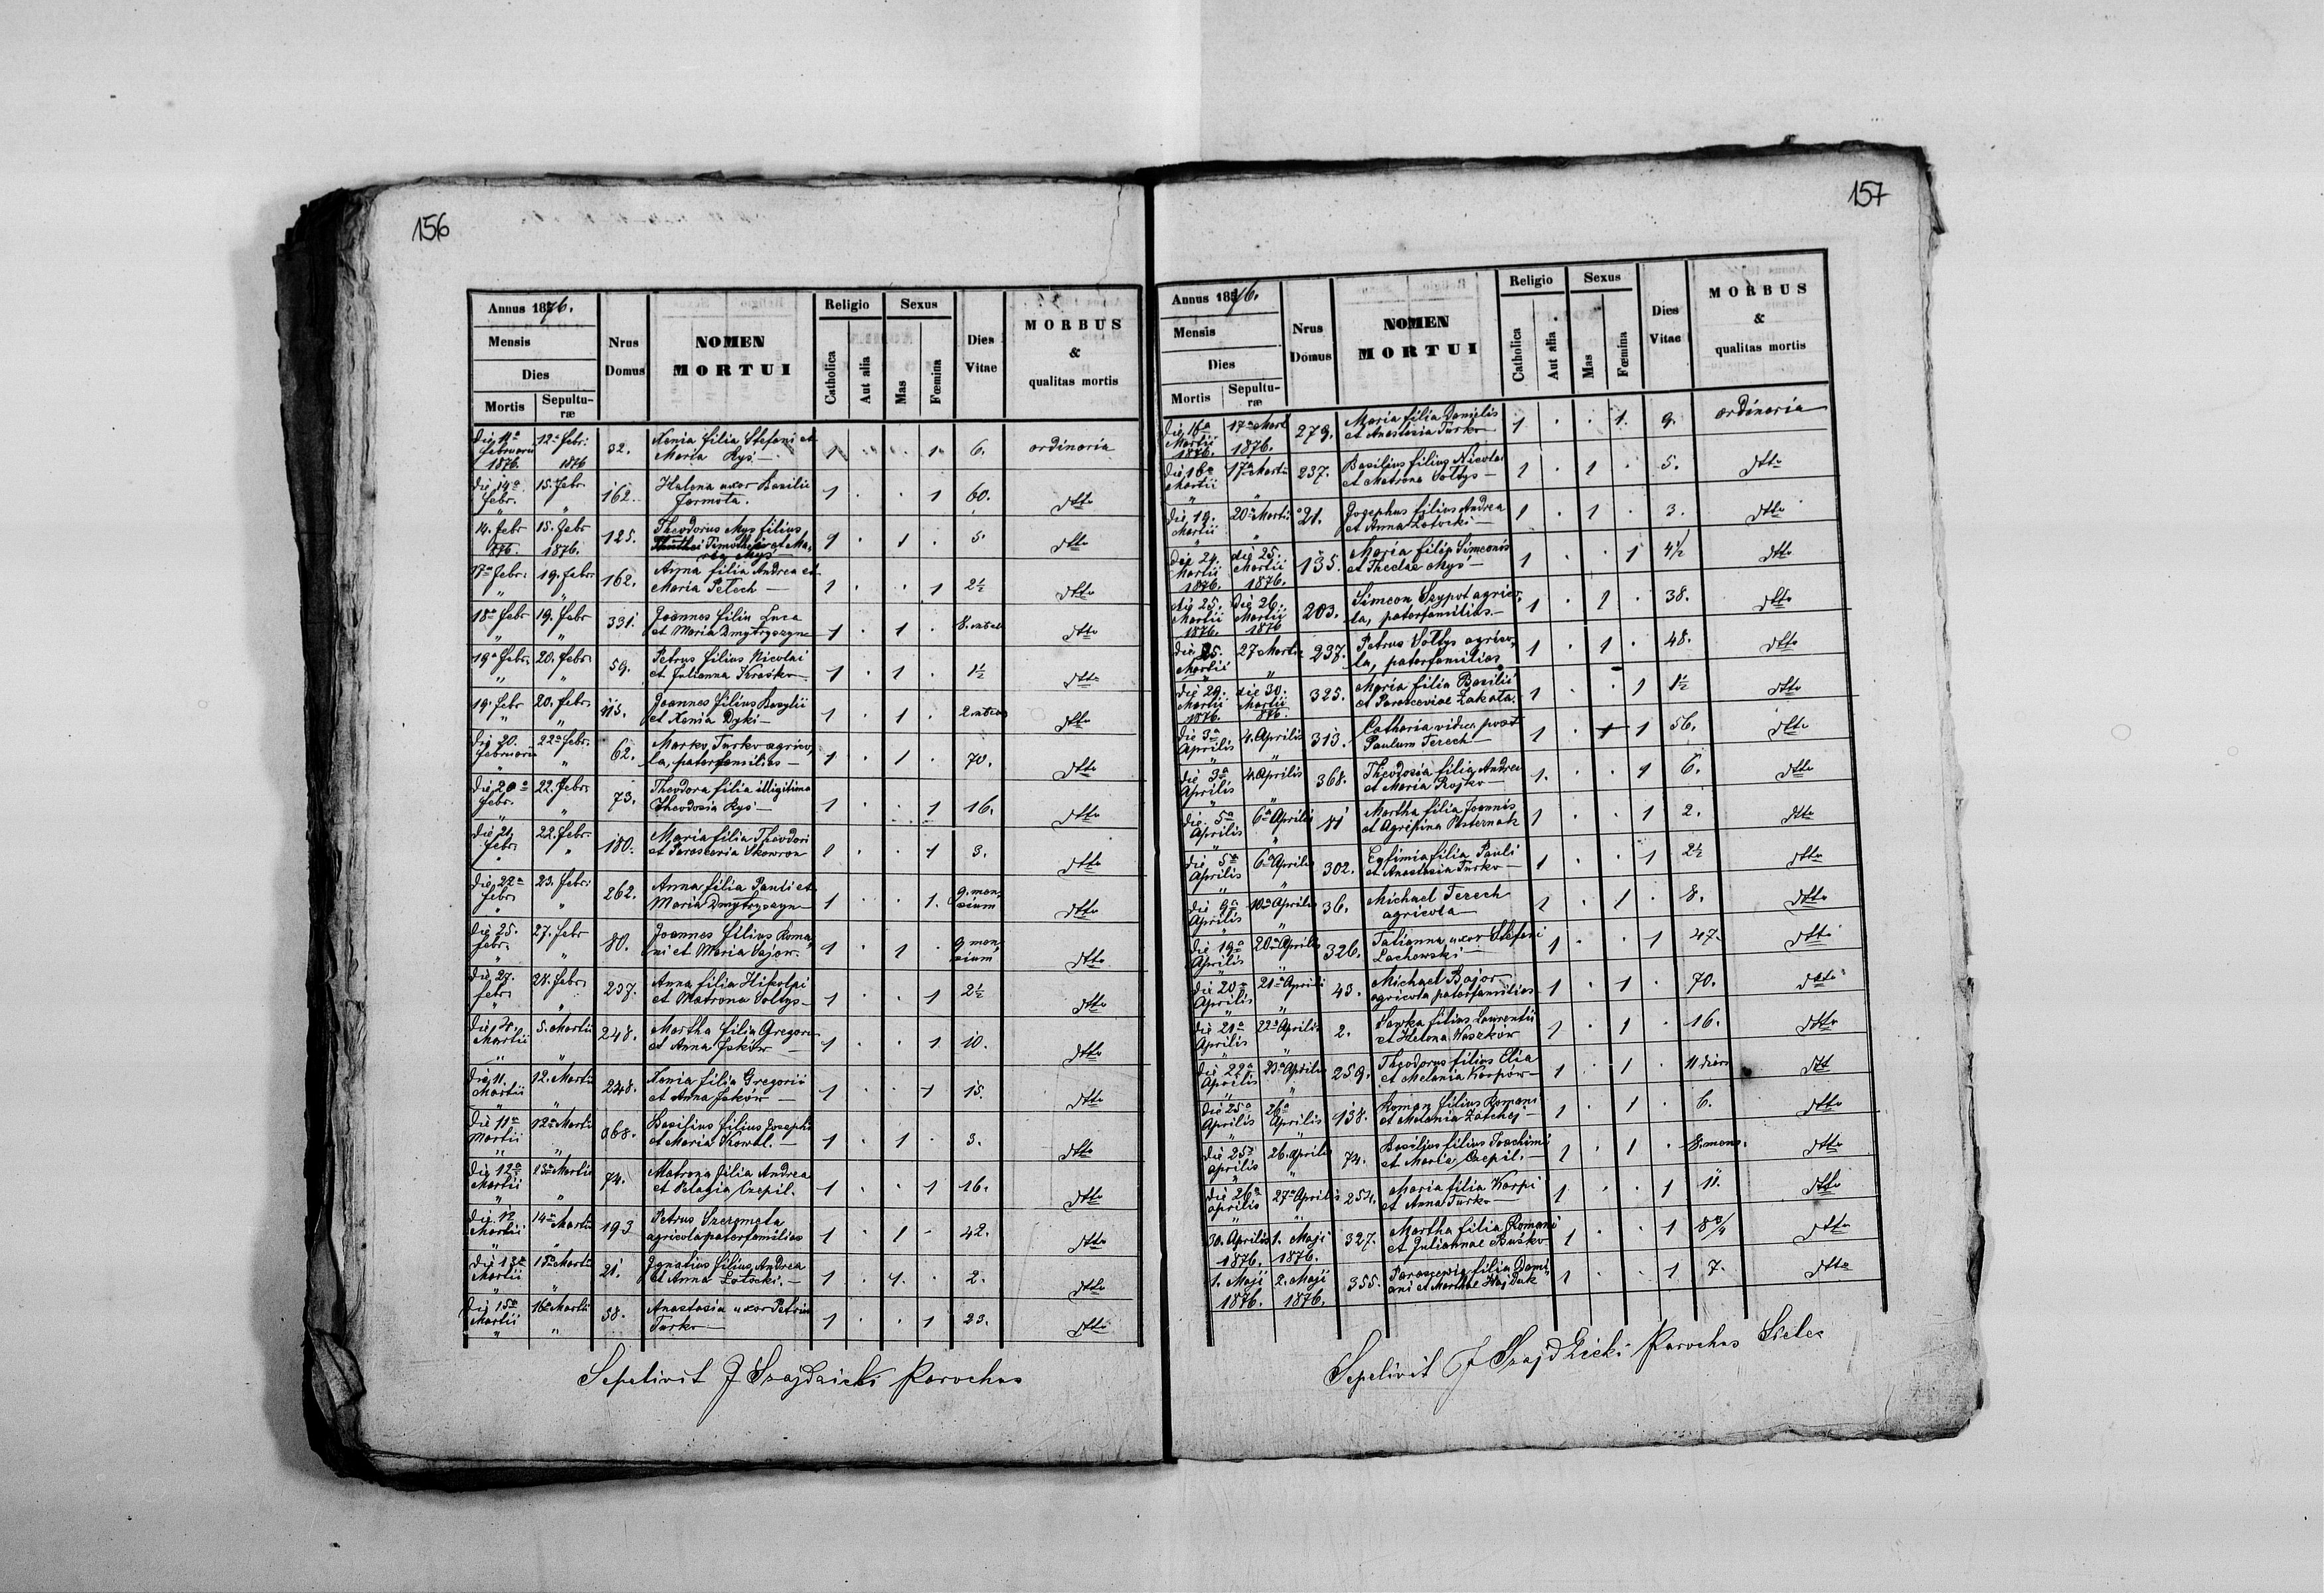 156
Annus 1876.
Mensis
Dies
Mortis
Sepultu-
ræ
Nrus
Domus
NOMEN
MORTUI
Religio
Catholica
Aut alia
Sexus
Mas
Fœmina
Dies
Vitae
MORBUS
&
qualitas mortis
die 11a 12a Febr: 32. Xenia filia Stefani et 1 1 6. ordinaria
Februarii 1876 Maria Rys
1876.
die 14a 15. Febr. 162. Helena uxor Basilii 1 . . 1 60. dtto
Febr. " Jarmota.
14. Febr 15. Febr 125. Theodorus Mys filius 1 . 1 . 5. dtto
876. 1876. Timothei et Ma-
ria Mys
17a Febr: 19. Febr. 162. Anna filia Andrea et 1 . . 1 2½ dtto
" " Maria Pelech
18a Febr 19. Febr 331. Joannes filiu Luca 1 . 1 . 8. dtto
" " et Maria Dmytryszyn
19a Febr. 20. Febr. 59. Petrus filius Nicolai 1 . 1 . 1½ dtto
" " et Julianna Kraśko
19. Febr 20. Febr. 115. Joannes filius Basylii 1 . 1 . 2 dtto
" " et Xenia Dyki
die 20. 22a Febr. 62. Marko Turko agrico- 1 . 1 . 70. dtto
Februarii " la, paterfamilias
die 20a 22. Febr. 73. Theodora filia illigitima 1 . . 1 16. dtto
Febr. " Theodosia Rys
die 21. 22. Febr. 180. Maria filia Theodori 1 . . 1 3. dtto
Febr. " et Parascevia Skowron
die 22a 23. Febr: 262. Anna filia Pauli et 1 . . 1. 9. men-
Febr. " Maria Dmytryszyn sium dtto
die 25. 27. Febr 80. Joannes filius Roma- 1 . 1 . 9 men-
Febr. " ni et Maria Sajow. sium dtto
die 27. 28. Febr. 237. Anna filia 1 . . 1 2½ dtto
Febr. " et Matrona Soltys
die 4. 5. Martii 248. Martha filia Gregorii 1 . . 1 10. dtto
Martii " et Anna Jśków
die 11. 12. Martii 248. Xenia filia Gregorii 1 . . 1 15. dtto
Martii " et Anna Jśków
die 11a 12a Martii 068. Basilius filius Josephi 1 . 1 . 3. dtto
Martii " et Maria Kowal.
die 12a 13a Martii 74. Matrona filia Andrea 1 . . 1 16. dtto
Martii " et Pelagia Czepil.
die 12 14a Martii 193 Petrus Szeremeta 1 . 1 - 42. dtto
Martii " agricola paterfamilias
die 13a 15a Martii 21. Ignatius filius Andrea 1 . 1. . 2. dtto
Martii " et Anna Zatocki.
die 15a 16a Martii 38. Anastasia uxor Petrii 1 . . 1 23. dtto
Martii " Turko
Sepelivit J Szajdzicki Parochus
157
Annus 1876.
Mensis
Dies
Mortis
Sepultu-
ræ
Nrus
Domus
NOMEN
MORTUI
Religio
Catholica
Aut alia
Sexus
Mas
Fœmina
Dies
Vitae
MORBUS
&
qualitas mortis
die 16a 17a Mart 279. Maria filia Danielis 1 . . 1. 9. ordinaria
Martii 1876. et Anastasia Turko
1876.
die 16a 17a Martii 237. Basilius filius Nicolai 1 . 1 . 5. dtto
Martii " et Matrona Soltys
die 19. 20a Martii 21. Josephus filius Andrea 1 . 1 . 3. dtto
Martii " et Anna Zotocki
die 24. die 25. 135. Maria filia Simeonis 1 . . 1 4½ dtto
Martii Martii et Theclae Myś
1876. 1876.
die 25. die 26. 203. Simeon Szypot agrico- 1 . 1 . 38. dtto
Martii Martii la, paterfamilias.
1876. 1876
die 25. 27 Martii 237. Petrus Soltys agrico- 1 . 1 . 48. dtto
Martii " la, paterfamilias
die 29. die 30. 325. Maria filia Basilii 1 . . 1 1½ dtto
Martii Martii et Parasceviae Zakala.
1876. 876.
die 3a 4. Aprilis 313. Catharia vidua post 1 . 1 1 56. dtto
Aprilis " Paulum Terech
die 3a 4. Aprilis 368. Theodosia filia Andrea 1. . . 1 6. dtto
Aprilis " et Maria Rojko
die 5a 6a Aprilis 81 Martha filia Joannis 1 . . 1 2. dtto
Aprilis " et Agrifina Pasternak
die 5a 6a Aprilis 302. Eufimia filia Pauli 1 . . 1 2½ dtto
Aprilis " et Anastasia Turko
die 9a 10a Aprilis 36. Michael Terech 1 . 1 . 8. dtto
Aprilis " agricola
die 19a 20a Aprilis 326. Tatianna uxor Stefani 1 . . 1 47. dtto
Aprilis " Lachowski
die 20a 21a Aprilis 43. Michael Bajor 1 . 1 . 70. dtto
Aprilis " agricola paterfamilias
die 21a 22a Aprilis 2. Hawka filius Laurentii 1 . 1 . 16. dtto
Aprilis " et Helena Waszków
die 22a 23a Aprilis 259. Theodorus filius Elia 1 . 1 . 11 dier. dtt
Aprilis " et Melania Karpów
die 25a 26a 138. Roman filius Romani 1 . 1 . 6. dtto
Aprilis Aprilis et Melania Zatchej
die 25a 26. Aprilis 74. Basilius filius Joachimi 1 . 1 . 8. mens. dtto
Aprilis " et Maria Czepil.
die 26a 27a Aprilis 254. Maria filia Karpi 1 . . 1 11. dtto
Aprilis " et Anna Turko
30. Aprilis 1. Maji 327. Martha filia Romani 1 . . 1 dtto
1876. 1876. et Juliannae Buśko
1. Maji 2. Maji 355. Paraszewia filia Dami- 1 . . 1 7. dtto
1876. 1876. ani et Marthae Hajdak
Sepelivit J Szajdzicki Parochus Sielec